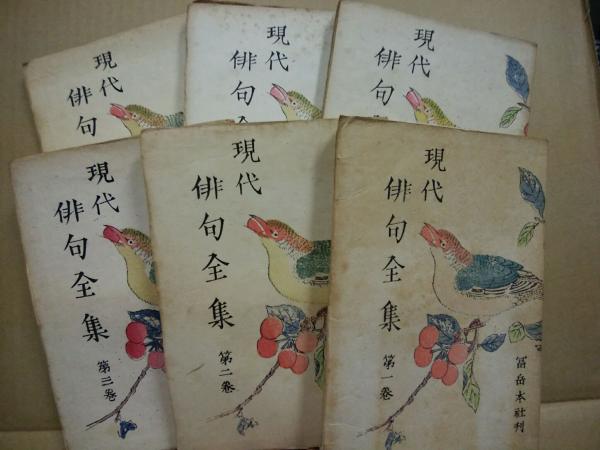 現代
俳句
現代
俳句全
現代
俳句
現代
俳句全集
第三巻
現代
俳句全集
第二巻
現代
俳句全集
第一巻
冨岳本社刊